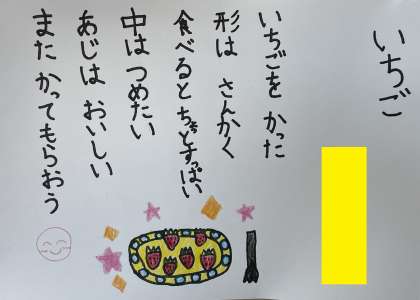 いちご
いちごを かった
形は さんかく
食べると ちょっとすっぱい
中は つめたい
あじは おいしい
また かってもらおう